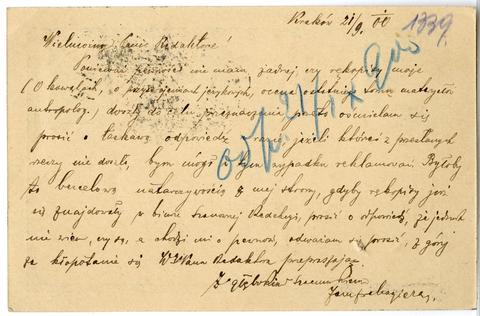 Kraków 21/9. 00
1339.
Wielmożny Panie Redaktorze!
Ponieważ pewności nie mam żadnej, czy rękopisy moje
(O kowalach, o językowych, ocena ostatniego tomu materyałów
antropolog.) doszły do celu przeznaczenia, przeto ośmielam się
prosić o łaskawą odpowiedź i razie, jeżeli któraś z przesłanych
rzeczy nie doszła, bym mógł w tym wypadku reklamować. Byłoby
to bezcelową natarczywością z mej strony, gdyby rękopisy już
się znajdowały w biurze Szanownej Redakcyi, prosić o odpowiedź, że jednak
nie wiem, czy są, a chodzi mi o pewność, odważam się prosić, z góry
za kłopotanie się WPana Redaktora przepraszając
Z głębokim szacunkiem
odp. 21/IX